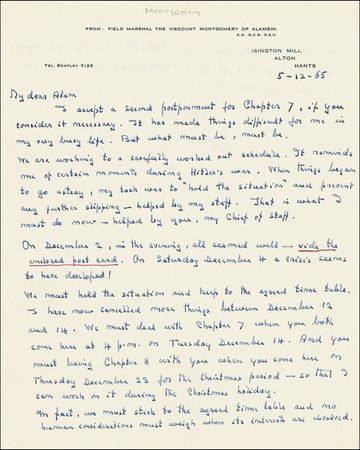 Montgomery
FROM: FIELD MARSHAL THE VISCOUNT MONTGOMERY OF ALAMEIN.
K.G., G.C.B., D.S.O.
TEL. BENTLEY 3126
ISINGTON MILL
ALTON
HANTS
5-12-65
My dear Alan
I accept a second postponment for Chapter 7, if you
consider it necessary. It has made things difficult for me in
my very busy life. But what must be, must be.
We are working to a carefully worked out schedule. It reminds
me of certain moments during Hitler's war. When things began
to go astray, my task was to "hold the situation" and prevent
any further slipping — helped by my staff. That is what I
must do now — helped by you, my Chief of Staff.
On December 2, in the evening, all seemed well — vide the
enclosed post card. On Saturday December 4 a crisis seems
to have developed!
We must hold the situation and keep to the agreed time table.
I have now cancelled more things between December 12
and 14. We must deal with Chapter 7 when you both
come here at 4 p.m. on Tuesday December 14. And you
must bring Chapter 8 with you when you come here on
Thursday December 23 for the Christmas period — so that I
can work on it during the Christmas holiday.
In fact, we must stick to the agreed time table and no
human considerations must weigh when its interests are involved.